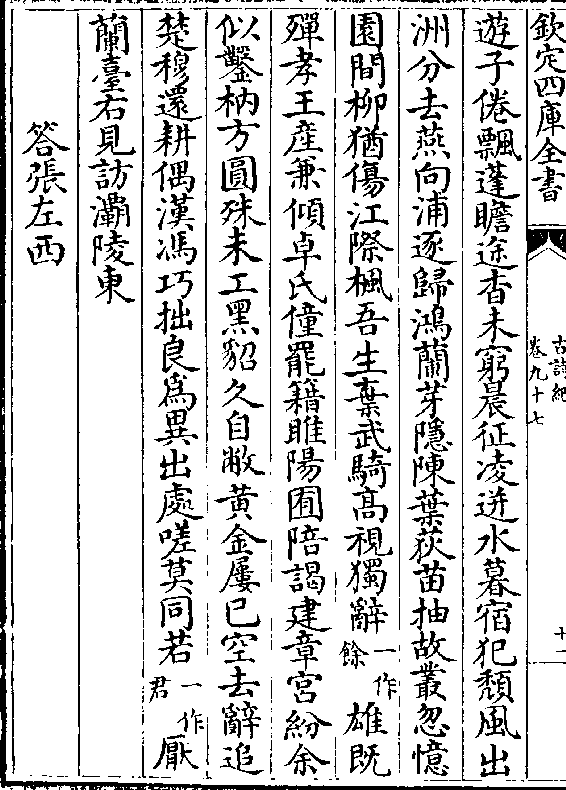 欽定四庫全書
古詩紀
卷九十七
十二
遊子倦飄蓬瞻途杳未窮晨征凌迸水暮宿犯頽風出
洲分去燕向浦逐歸鴻蘭芽隱陳葉荻苗抽故叢忽憶
園間柳猶傷江際楓吾生棄武騎高視獨辭一作餘雄既
殫孝王産兼傾卓氏僮罷籍睢陽囿陪謁建章宮紛余
似鑿枘方圓殊未工黑貂久自敝黃金屢已空去辭追
楚穆還耕偶漢馮巧拙良爲異出處嗟莫同若一作君厭
蘭臺右見訪灞陵東
答張左西